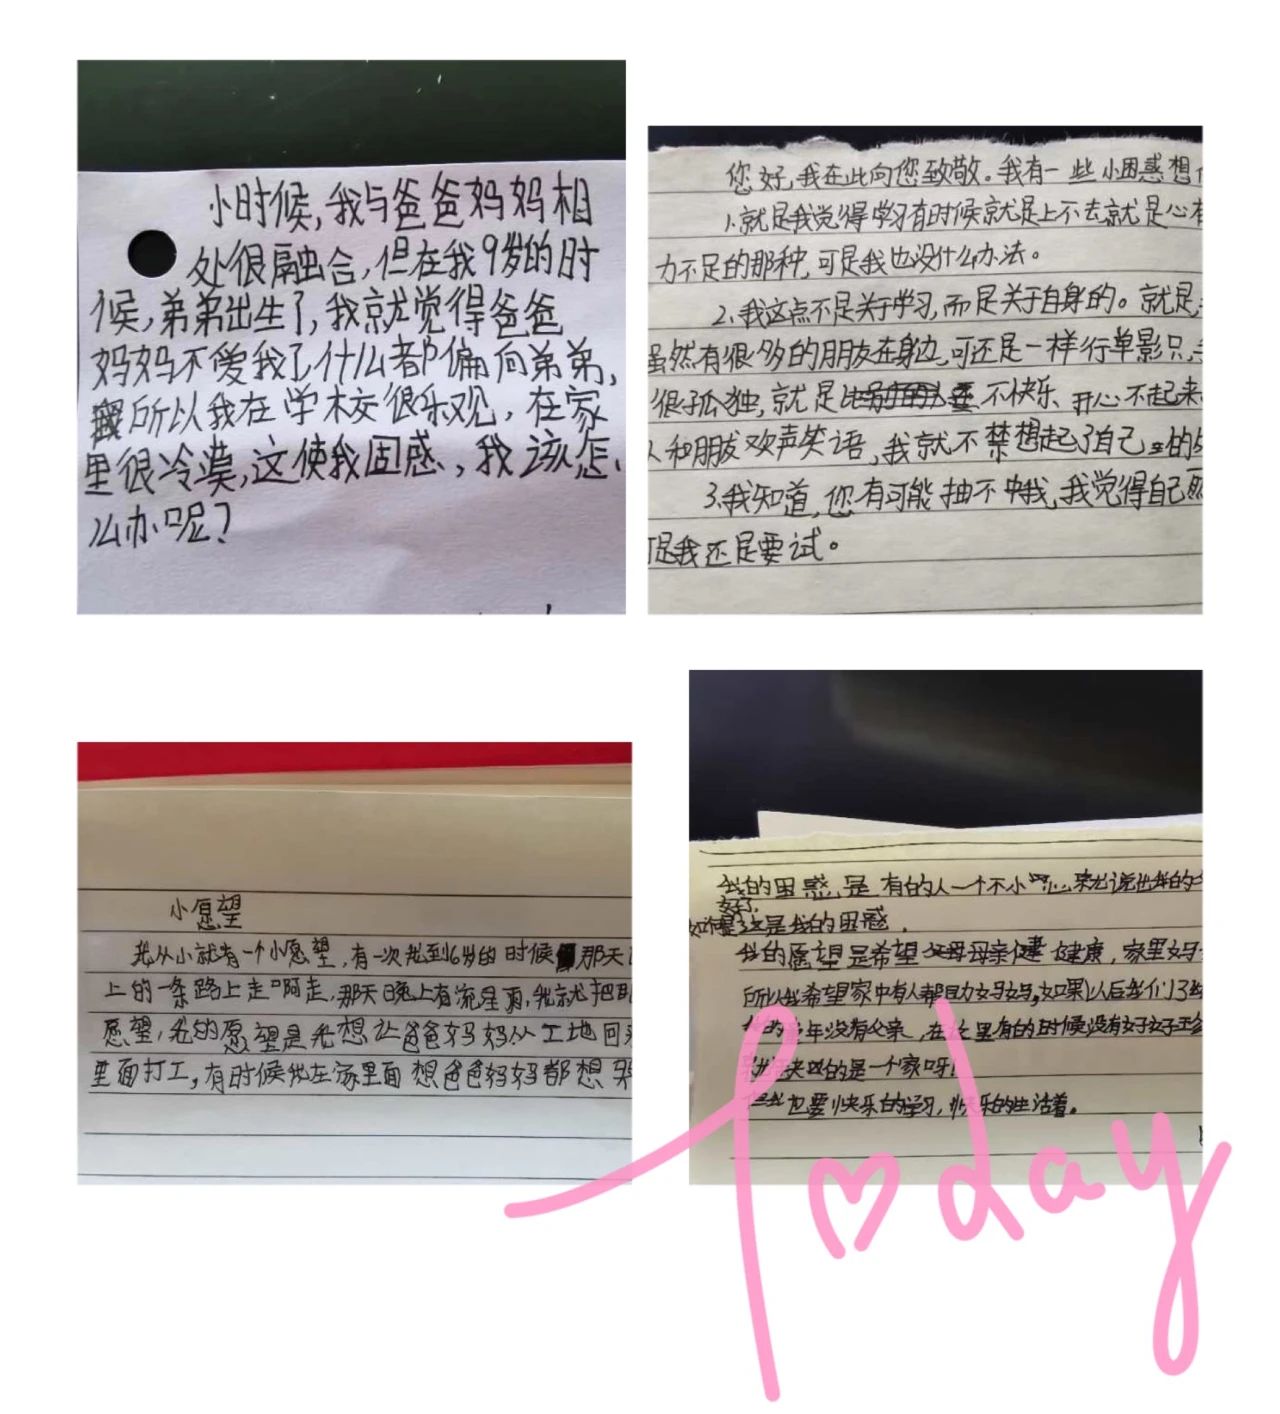 小时候,我与爸爸妈妈相
处很融合,但在我9岁的时
候,弟弟出生了,我就觉得爸爸
妈妈不爱我了什么都偏向弟弟,
所以我在学校很乐观,在家
里很冷漠,这使我困惑,我该怎
么办呢?
您好,我在此向您致敬。我有一些小困惑想
1.就是我觉得学习有时候就是上不去就是心有
力不足的那种,可是我也没什么办法。
2.我这点不是关于学习,而是关于自身的。就是
虽然有很多的朋友在身边,可还是一样行单影只,
很孤独,就是 不快乐 开心不起来
人和朋友欢声笑语,我就不禁想起了自己 的
3.我知道,您有可能抽不中我,我觉得自己
可是我还是要试。
小愿望
我从小就有一个小愿望,有一次我到6岁的时候 那天
上的一条路上走啊走,那天晚上有流星雨,我就把
愿望,我的愿望是我想让爸爸妈妈从工地回
里面打工,有时候我在家里面想爸爸妈妈都想哭
我的困惑是有的人一个不小心就说出我的
这是我的困惑.
我的愿望是希望 母亲 健康,家里
所以我希望家中有人帮助妈妈,如果以后我们
年没有父亲,在 里有的时候没有
的是一个家呀!
也要快乐的学习,快乐的生活着。
Today